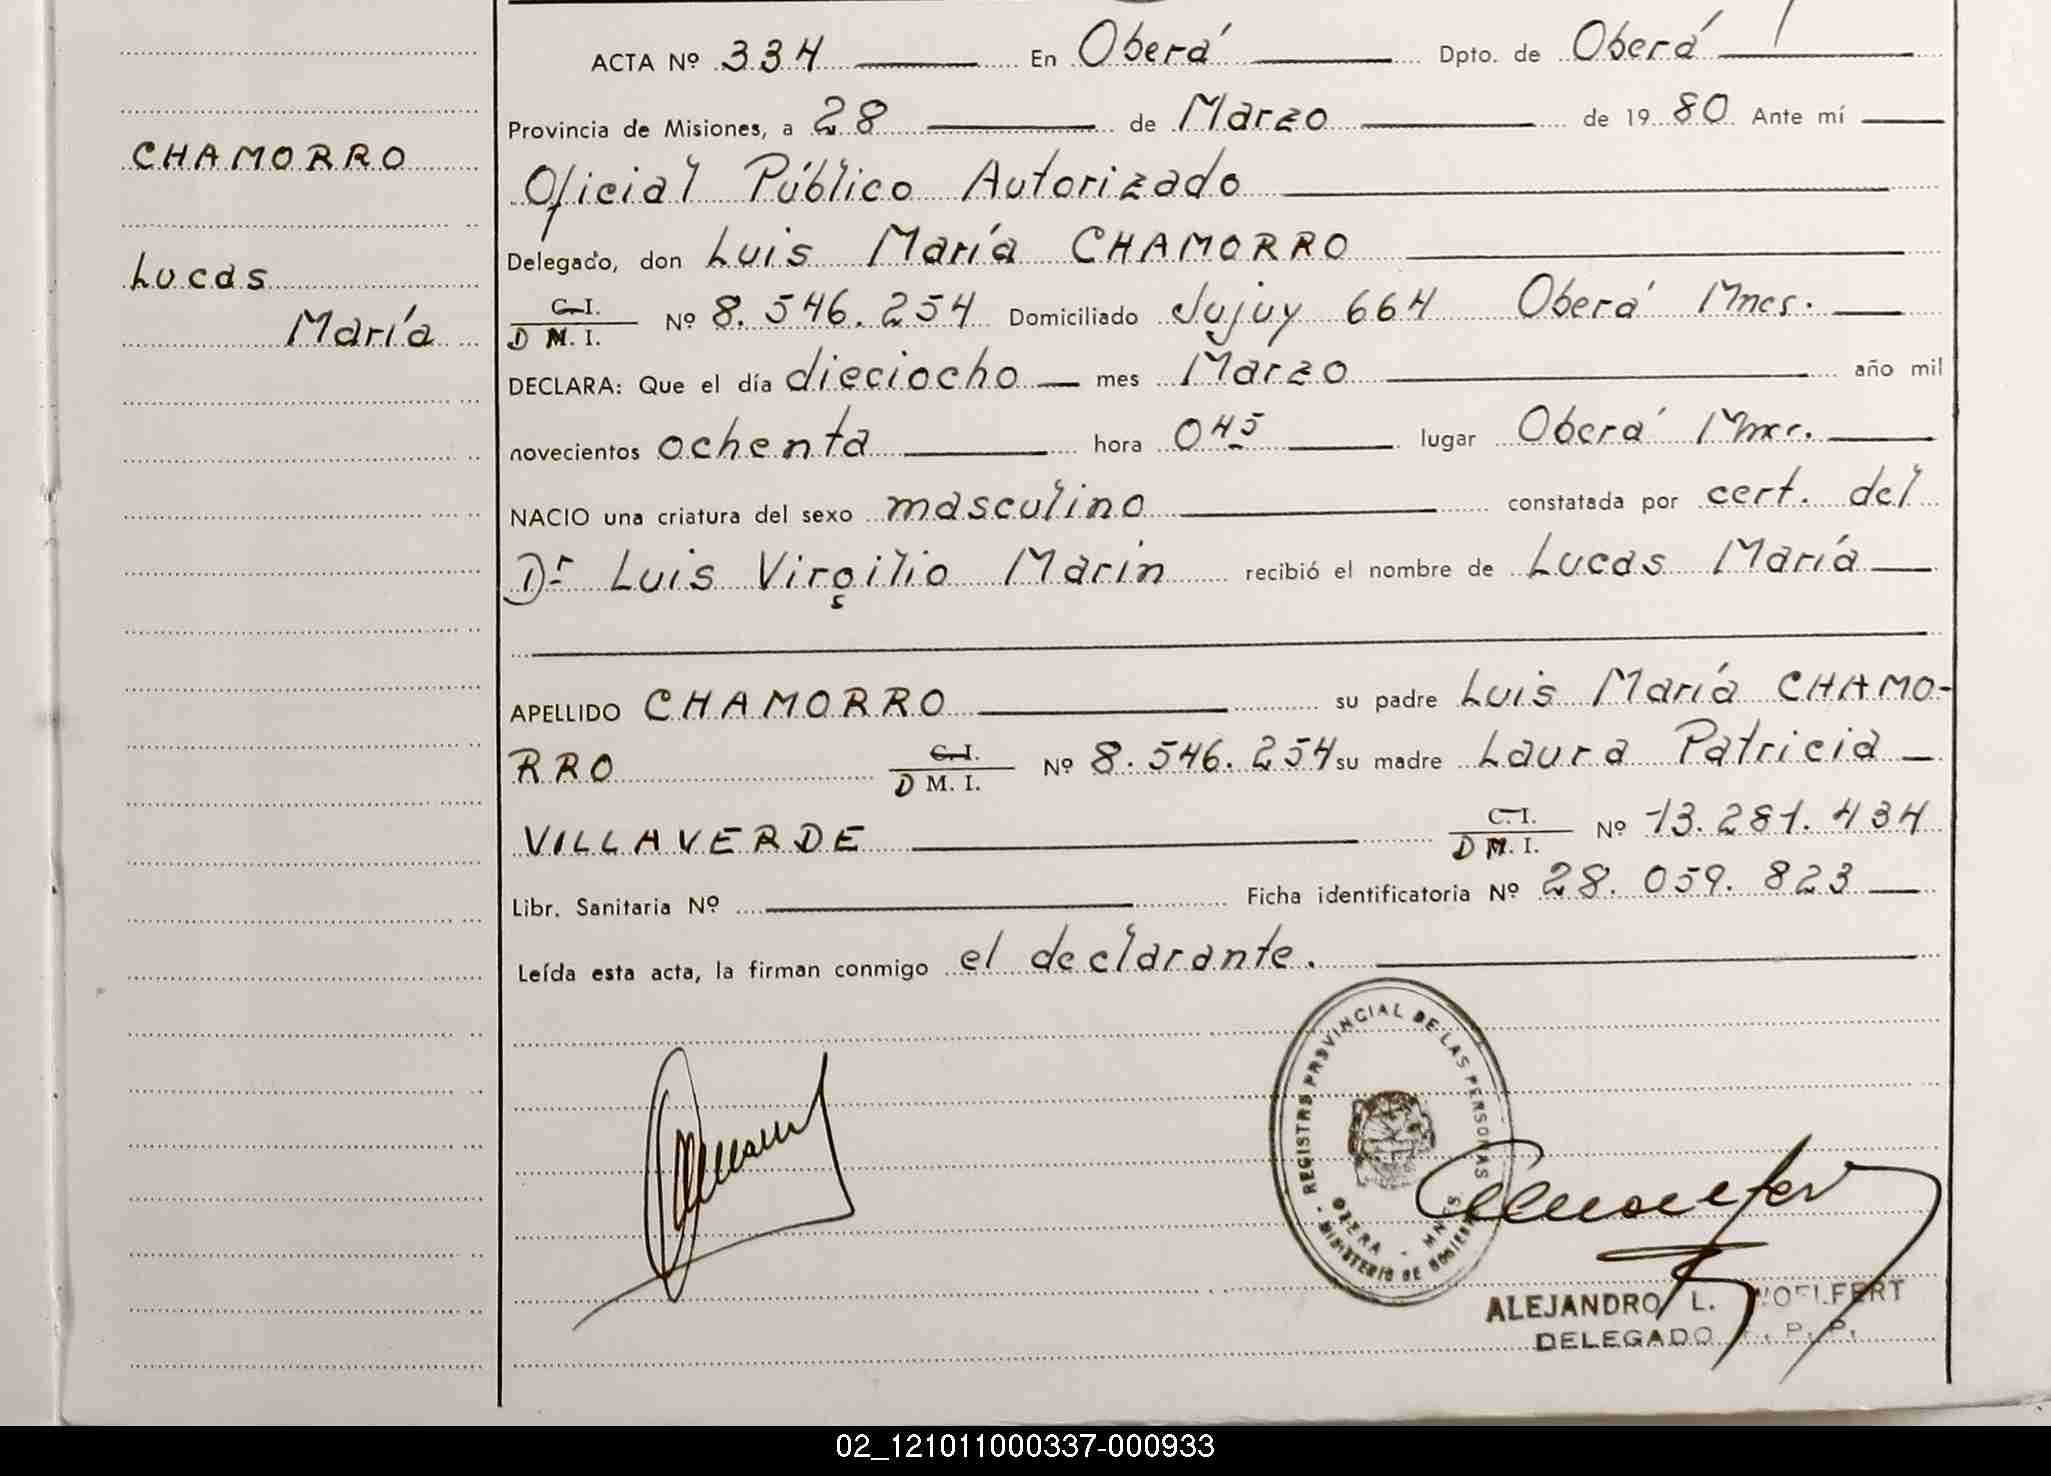 ACTA Nº 334 En Oberá Dpto. de Oberá
Provincia de Misiones, a 28 de Marzo de 1980 Ante mí
CHAMORRO
Oficial Público Autorizado
Delegado, don Luis María CHAMORRO
Lucas
María
C.I.
D M. I. Nº 8.546.254 Domiciliado Jujuy 664 Oberá Mnes.
DECLARA: Que el día dieciocho mes Marzo año mil
novecientos ochenta hora 0 45 lugar Oberá Mnes.
NACIO una criatura del sexo masculino constatada por cert. del
Dr Luis Virgilio Marin recibió el nombre de Lucas María
APELLIDO CHAMORRO su padre Luis María CHAMO-
RRO C.I. D M. I. Nº 8.546.254 su madre Laura Patricia
VILLAVERDE C.I. D M. I. Nº 13.281.434
Libr. Sanitaria Nº Ficha identificatoria Nº 28.059.823
Leída esta acta, la firman conmigo el declarante.
REGISTRO PROVINCIAL DE LAS PERSONAS
OBERA - MNES
MINISTERIO DE GOBIERNO
ALEJANDRO L. WOELFERT
DELEGADO R. P. P.
02_121011000337-000933